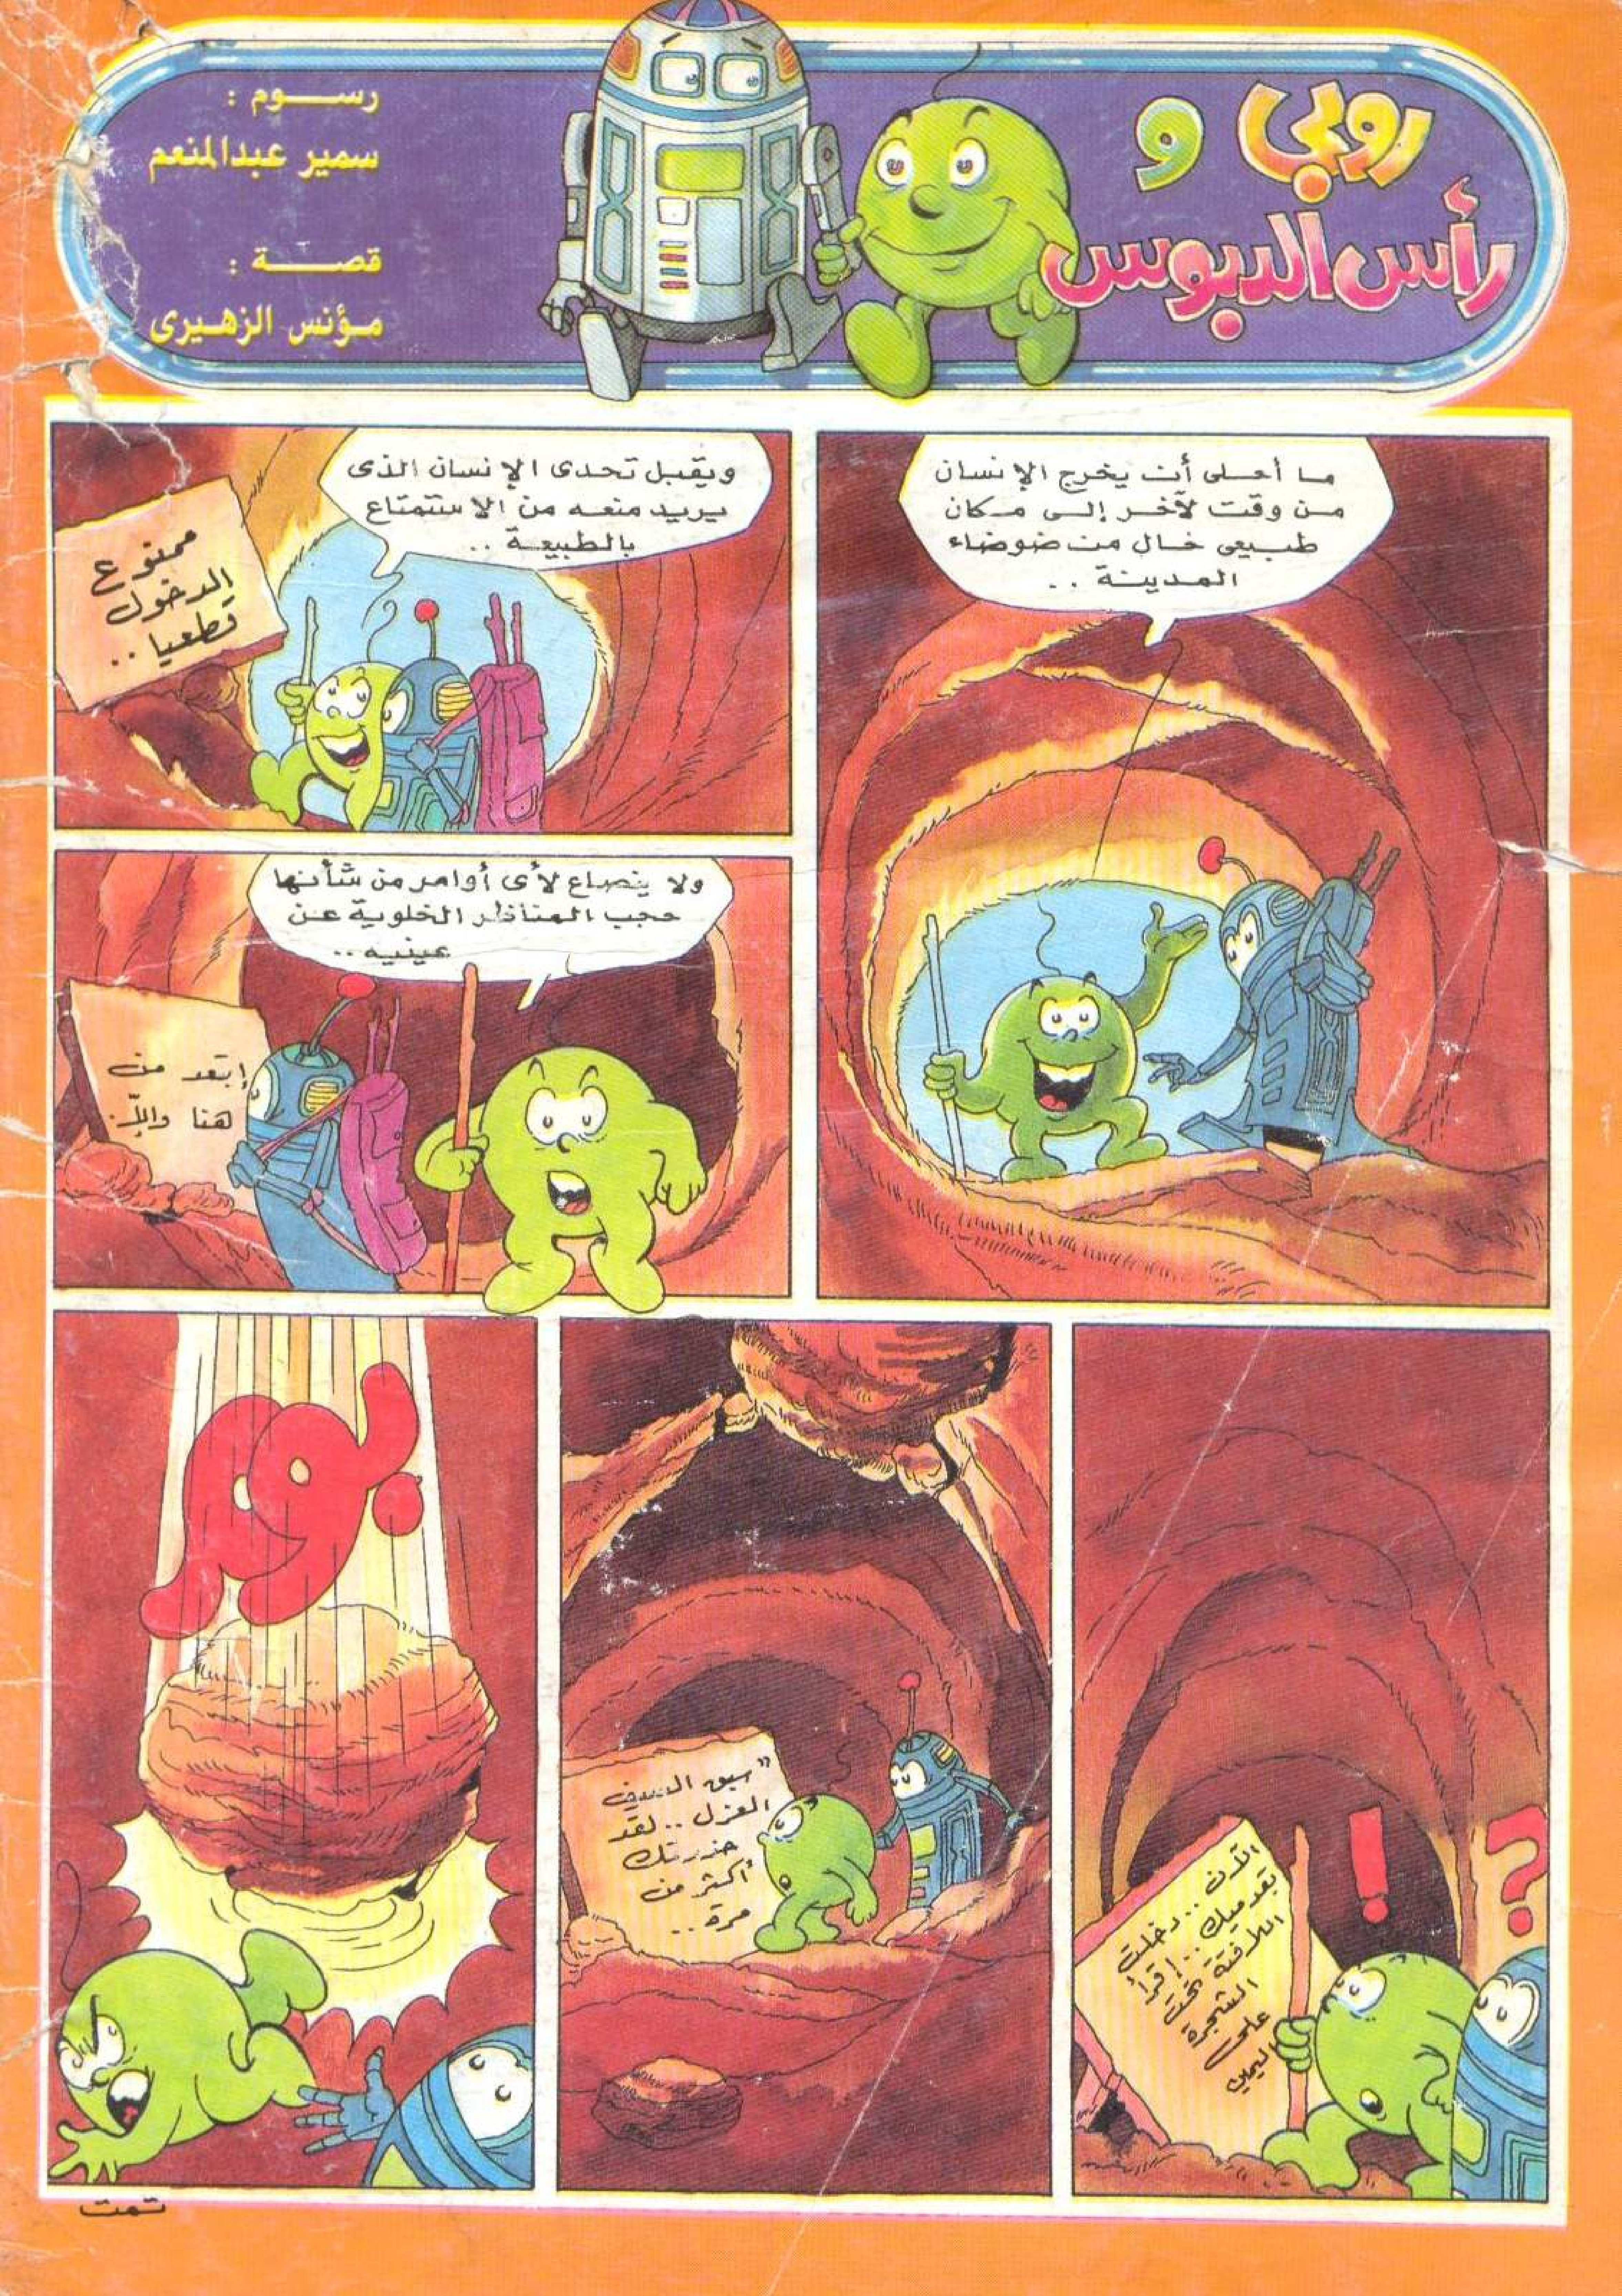 روبي و
رأس الدبوس
رسوم :
سمير عبدالمنعم
قصة :
مؤنس الزهيرى
ما أحلى أن يخرج الإنسان
من وقت لآخر إلى مكان
طبيعى خال من ضوضاء
المدينة . .
ويقبل تحدى الإنسان الذى
يريد منعه من الاستمتاع
بالطبيعة . .
ممنوع
الدخول
قطعيا . .
ولا ينصاع لأى أوامر من شأنها
حجب المناظر الخلوية عن
عينيه . .
إبتعد من
هنا وإلّا..
الآن . . دخلت
بقدميك . . إقرأ
اللافتة تحت
الشجرة
على
اليمين
؟!
"سبق السيف
العزل . . لقد
حذرتك
أكثر من
مرة . .
بوم
تمت